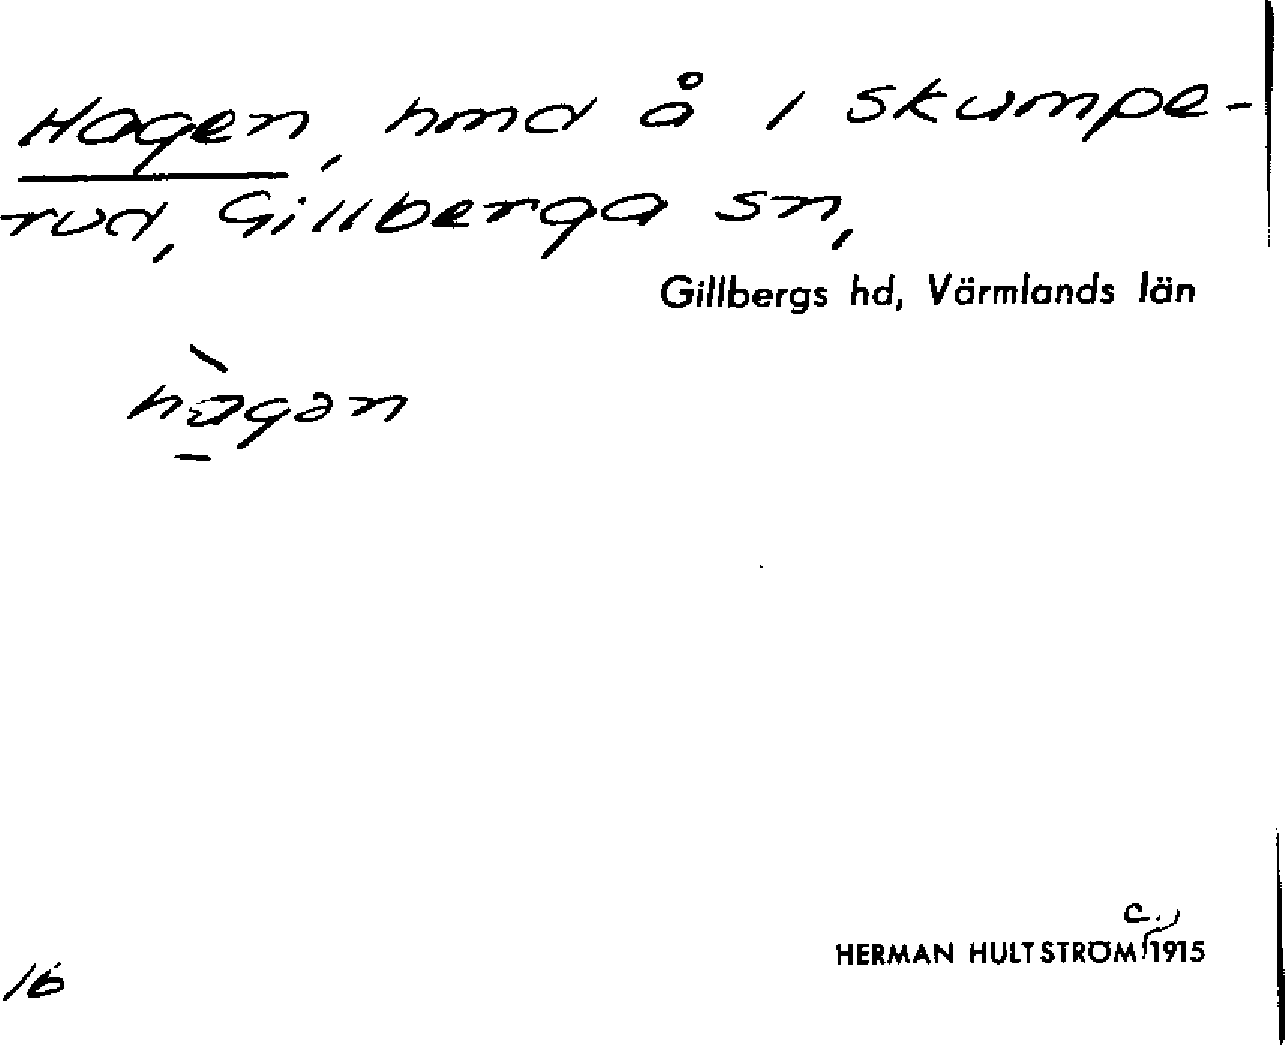 Hagen, hmd å 1 Skumpe-
rud, Gillberga sn,
Gillbergs hd, Värmlands län
hàgən
16
c.
HERMAN HULTSTRÖM 1915